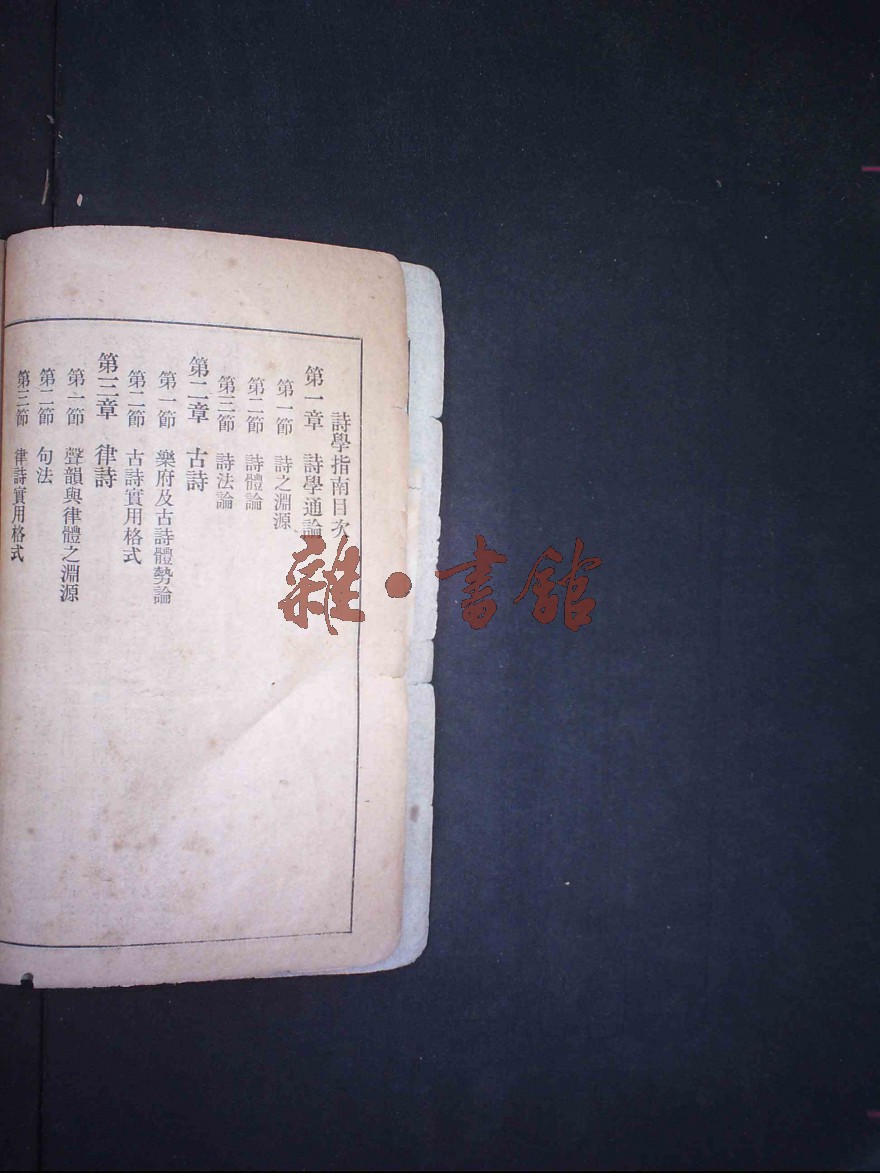 詩學指南目次
第一章 詩學通論
第一節 詩之淵源
第二節 詩體論
第三節 詩法論
第二章 古詩
第一節 樂府及古詩體勢論
第二節 古詩實用格式
第三章 律詩
第一節 聲韻與律體之淵源
第二節 句法
第三節 律詩實用格式
雜·書館